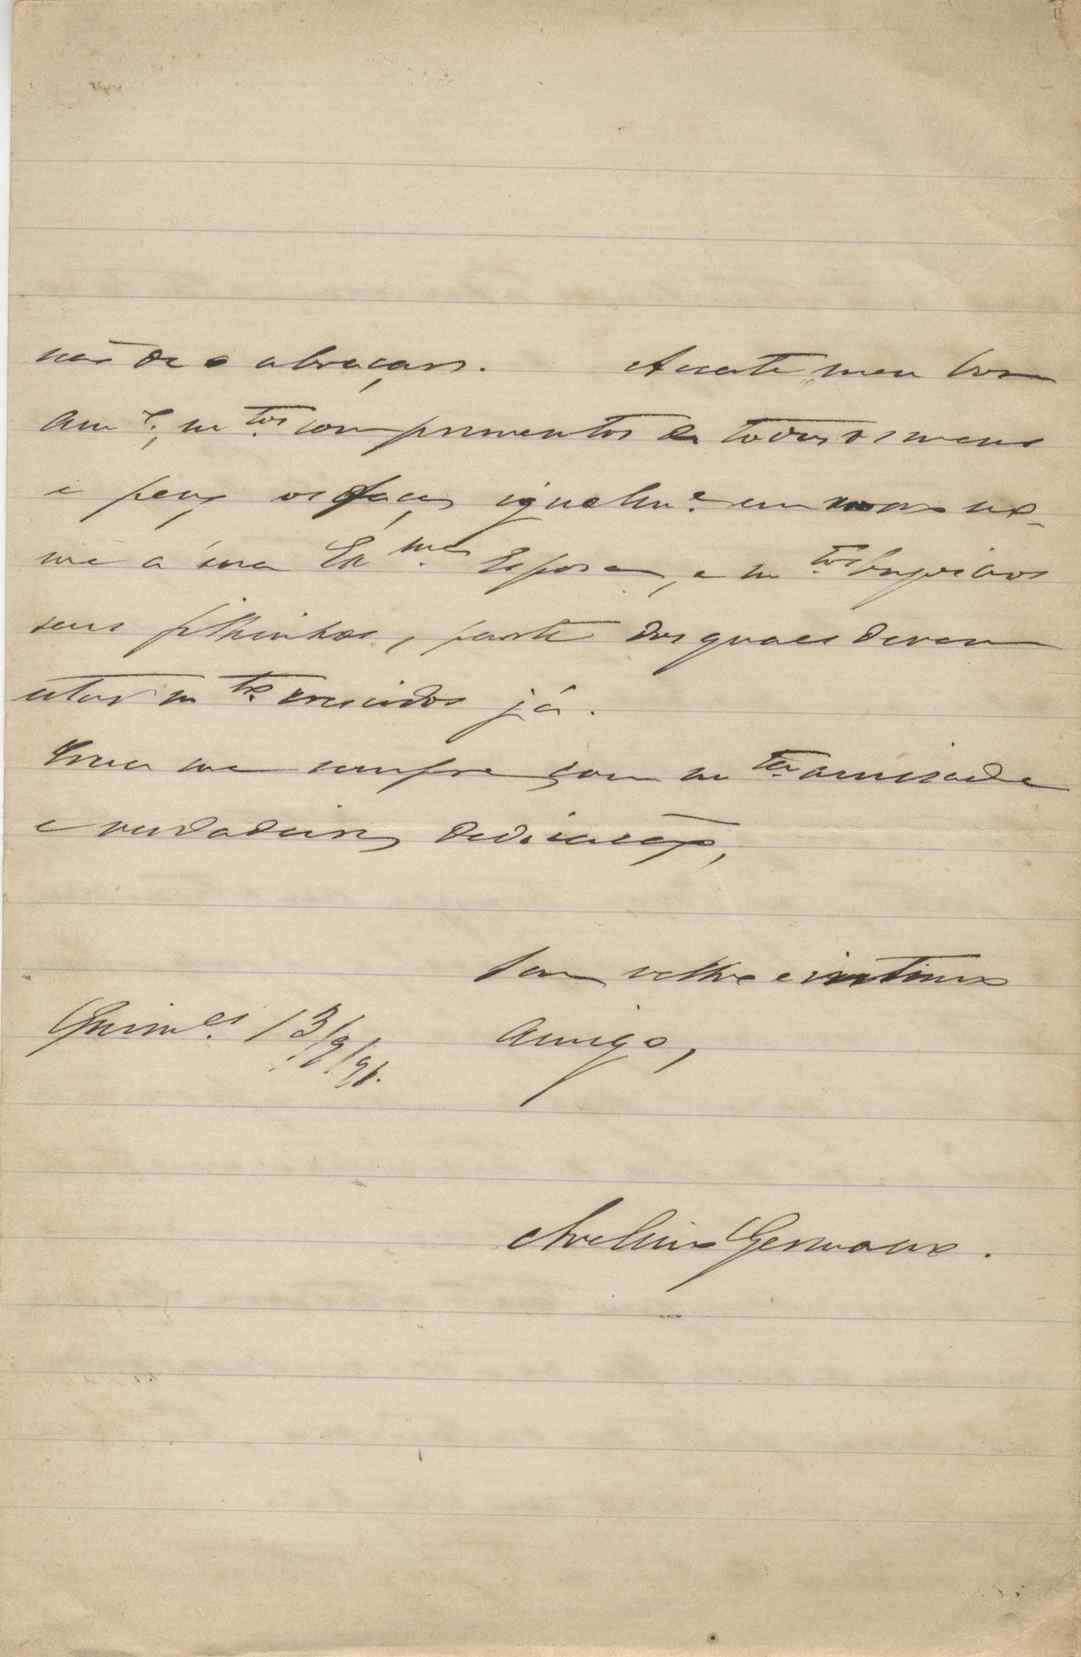 não de o abraçar. Acceite, meu bom
Amº, mtos comprimentos de todos os meus
e peço os faça igualme em nosso no-
me á sua Exma Esposa, e mtos beijos aos
seus filhinhos, parte dos quaes devem
estar mto crescidos já.
Creia me sempre com mta amisade
e verdadeira dedicação,
Seu velho e intimo
Guimes 13/9/91. Amigo,
Avelino Germano.